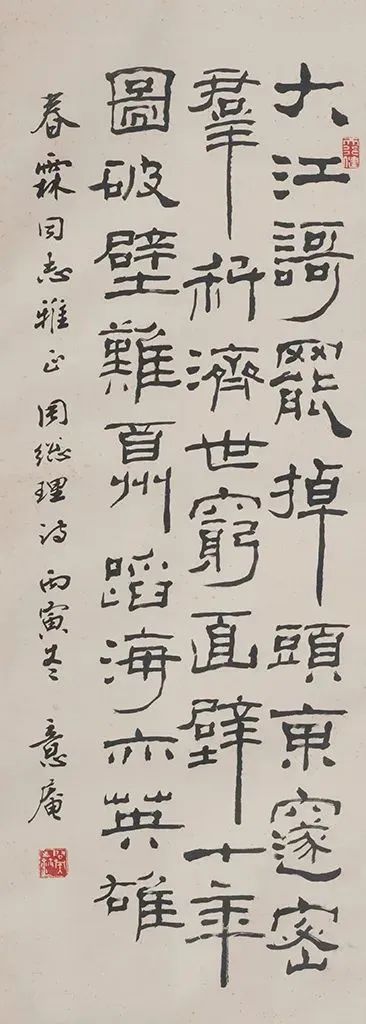 大江謌罷掉頭東邃密
羣科濟世窮面壁十年
圖破壁難酬蹈海亦英雄
春霖同志雅正 周總理诗 丙寅冬 意庵